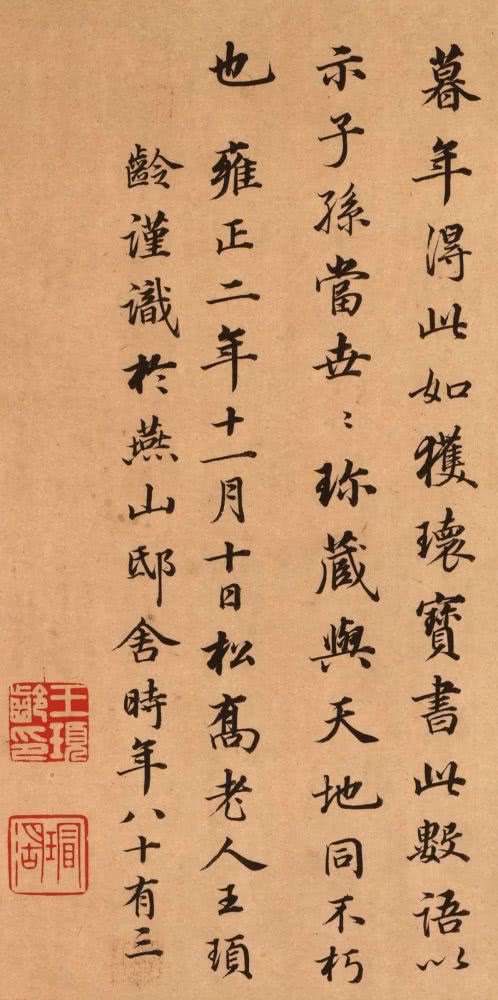 暮年得此如獲瓌寶書此數語以
示子孫當世〻珎藏與天地同不朽
也 雍正二年十一月十日松喬老人王頊
齡謹識於燕山邸舍時年八十有三
王頊
齡印
瑁
湖